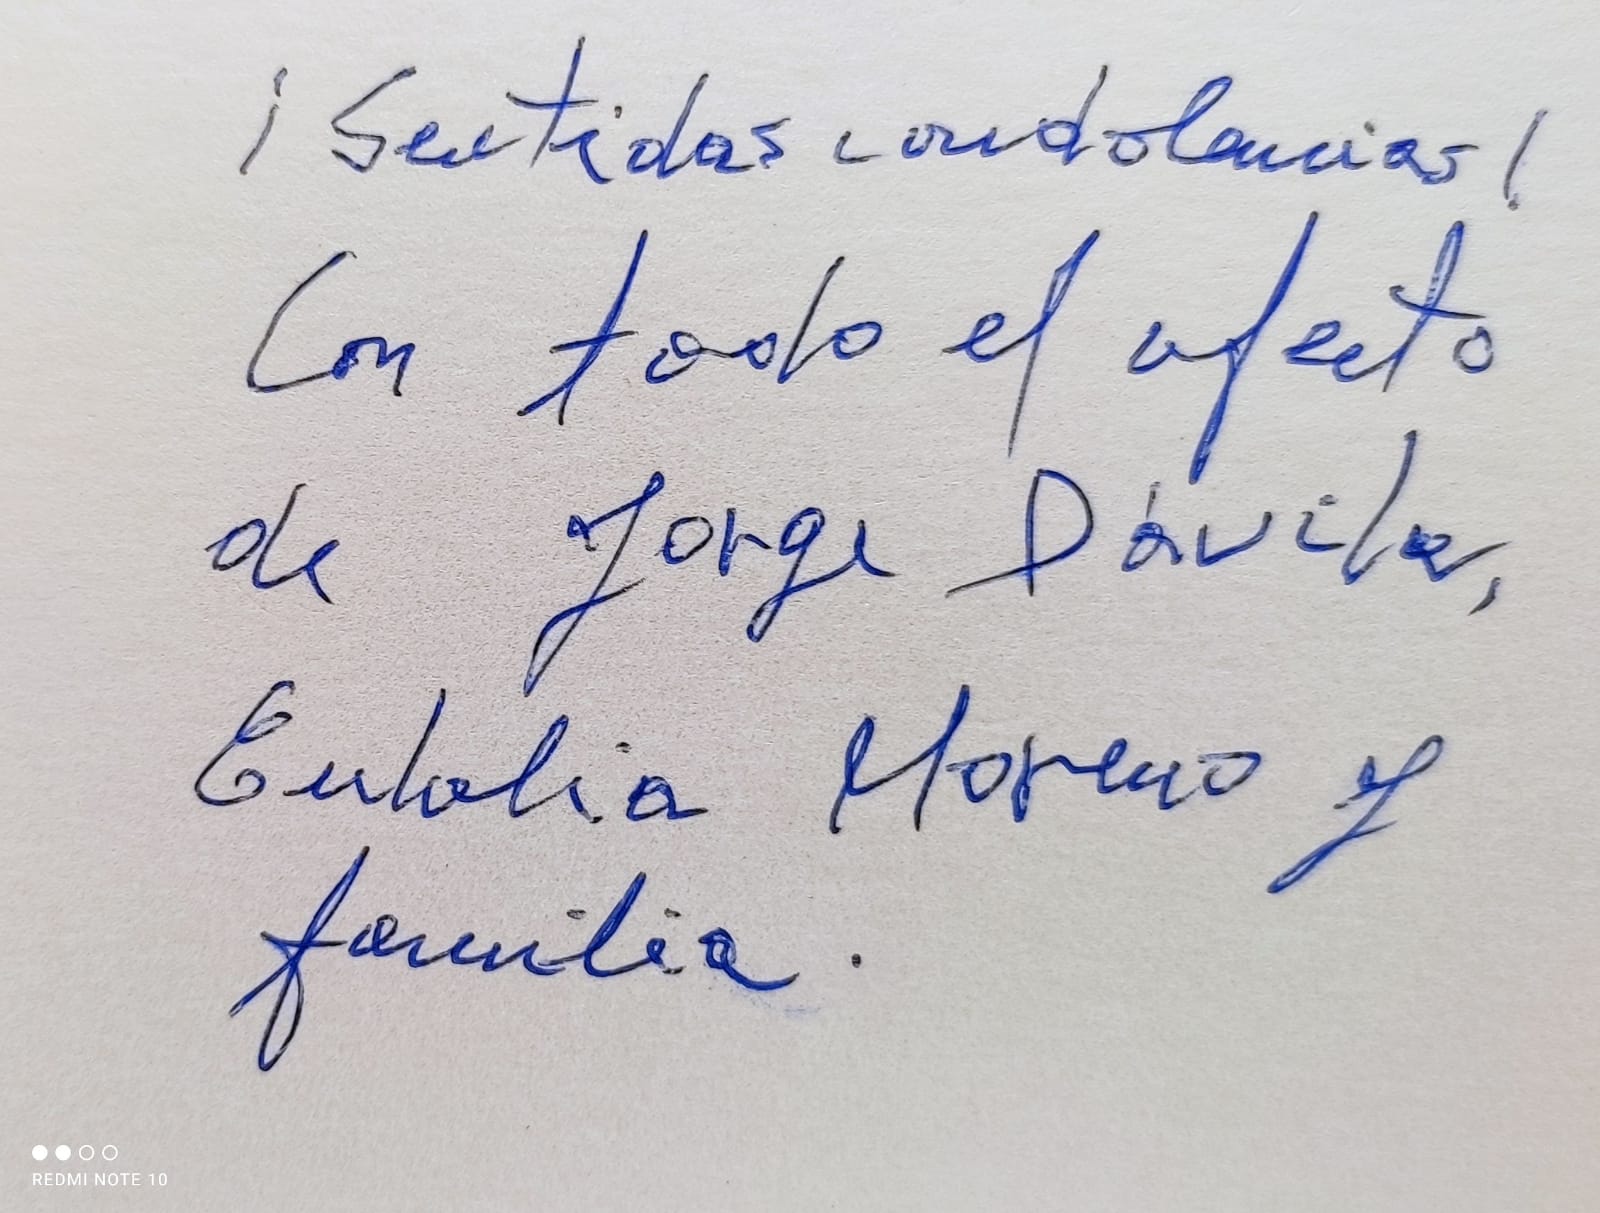 ¡Sentidas condolencias!
Con todo el afecto
de Jorge Dávila,
Eulalia Moreno y
familia.
REDMI NOTE 10